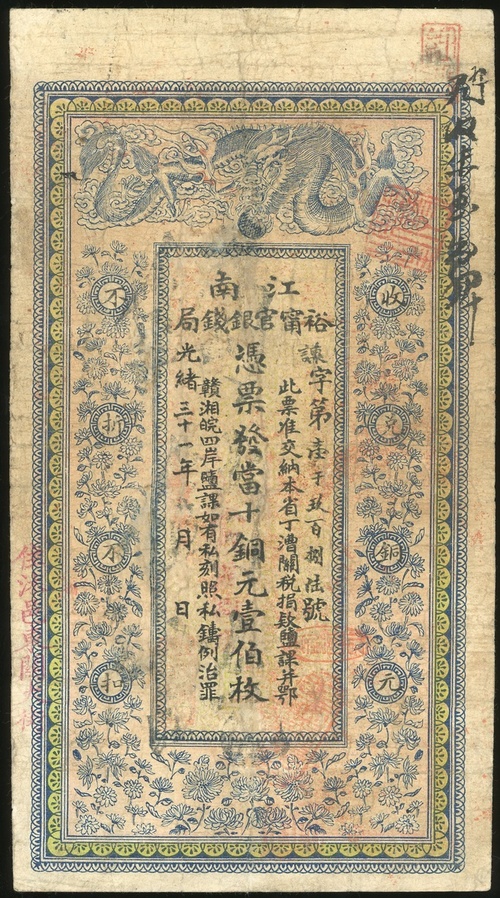 收兌銅元
江南
裕甯官銀錢局
字第壹千玖百捌號
此票准交納本省丁漕關稅捐款鹽課并鄂
憑票發當十銅元壹伯枚
贛湘皖四岸鹽課如有私刻照私鑄例治罪
光緒三十一年 月 日
不折不扣